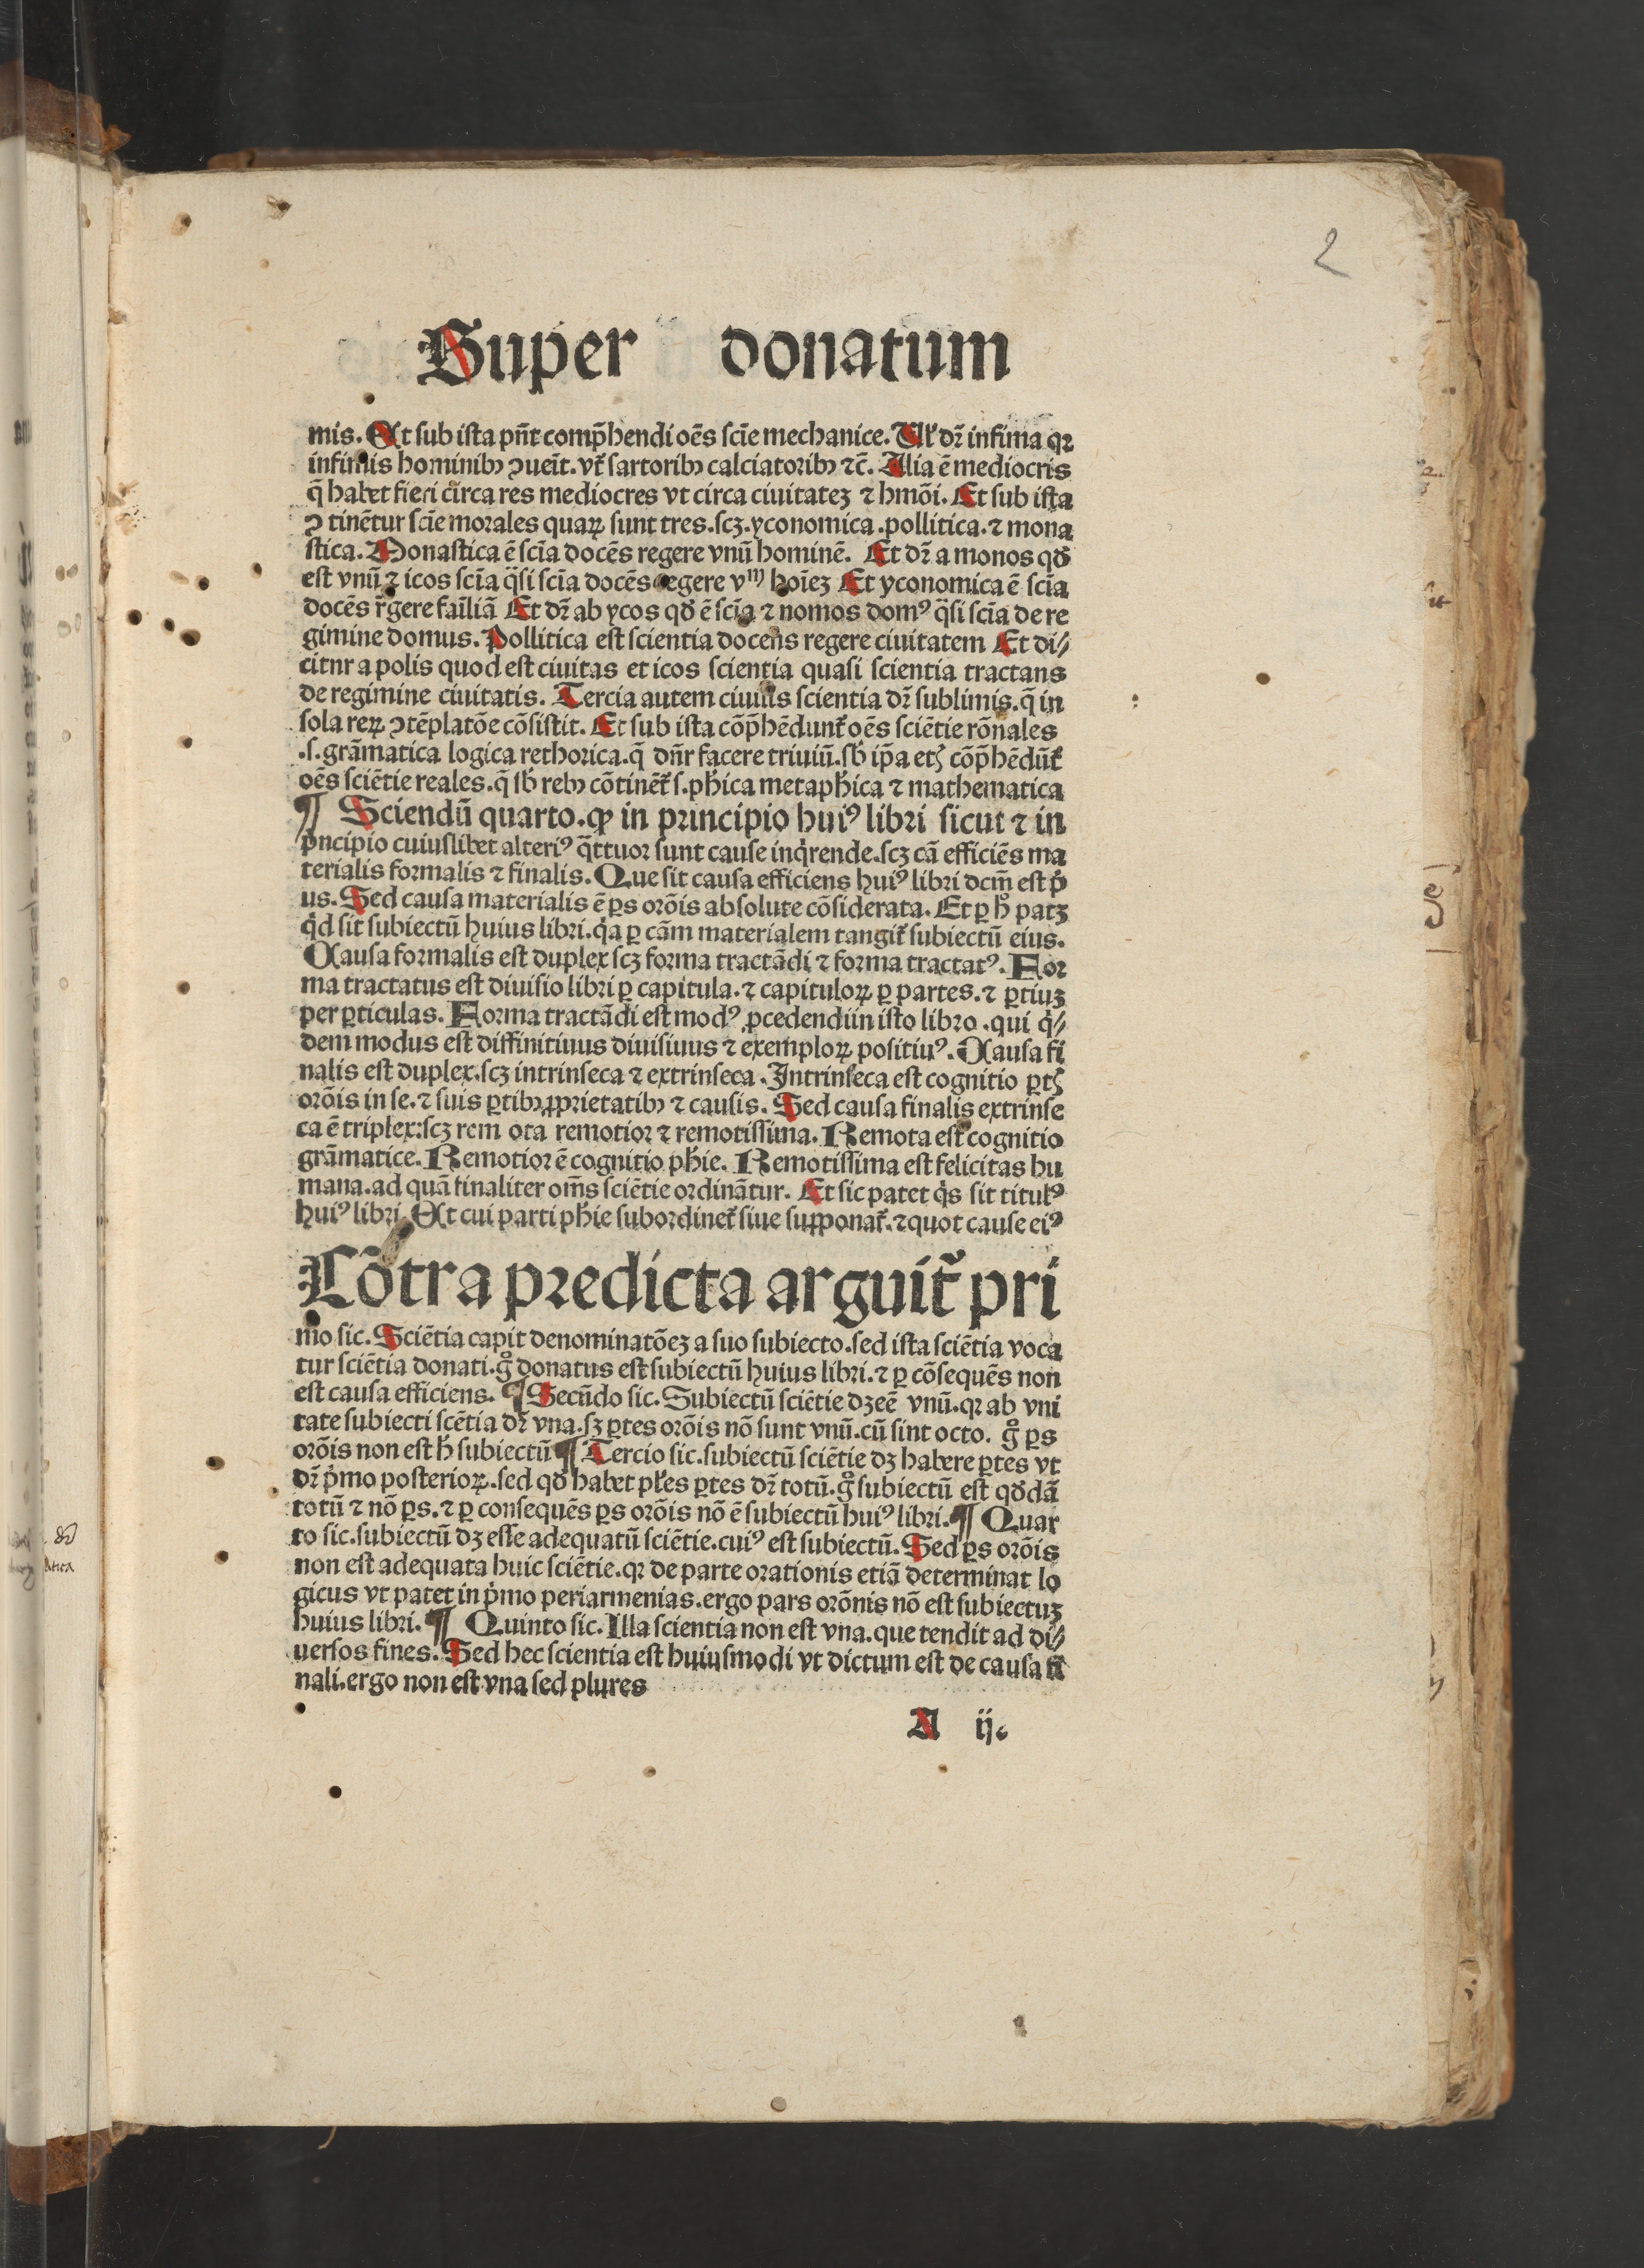 2
Super donatum
mis. Et sub ista pn̄t comp̄hendi oēs scīe mechanice. Ul' dr̄ infima qꝛ
infimis hominibꝫ ꝯueīt. vt̄ sartoribꝫ calciatoribꝫ ⁊c̄. Alia ē mediocris
q̄ habet fieri circa res mediocres vt circa ciuitateꝫ ⁊ hmōi. Et sub ista
ꝯ tinētur scīe morales quaꝝ sunt tres. scꝫ. yconomica. pollitica. ⁊ mona
stica. Monastica ē scīa docēs regere vnū hominē. Et dr̄ a monos qđ
est vnū ⁊ icos scīa q̈si scīa docēs regere vm̄ hoīeꝫ Et yconomica ē scīa
docēs r̄gere faīliā Et dr̄ ab ycos qđ ē scīa ⁊ nomos domꝰ q̈si scīa de re
gimine domus. Pollitica est scientia docens regere ciuitatem Et di⸗
citnr a polis quod est ciuitas et icos scientia quasi scientia tractans
de regimine ciuitatis. Tercia autem ciuilis scientia dr̄ sublimis. q̄ in
sola reꝝ ꝯtēplatōe cōsistit. Et sub ista cōp̄hēdunt̄ oēs sciētie rōnales
.s. grāmatica logica rethorica. q̄ dn̄r facere triuiū. sb̄ ip̄a etꝭ cōp̄hēdūt̄
oēs sciētie reales. q̄ sb̄ rebꝫ cōtinēt̄ s. ph̄ica metaph̄ica ⁊ mathematica
¶ Sciendū quarto. ꝙ in principio huiꝰ libri sicut ⁊ in
pͥncipio cuiuslibet alteriꝰ q̄ttuor sunt cause inqͥrende. scꝫ cā efficiēs ma
terialis formalis ⁊ finalis. Que sit causa efficiens huiꝰ libri dcm̄ est pͥ
us. Sed causa materialis ē ꝑs orōis absolute cōsiderata. Et ꝑ hͦ patꝫ
qͥd sit subiectū huius libri. qͥa ꝑ cām materialem tangit̄ subiectū eius.
Causa formalis est duplex scꝫ forma tractādi ⁊ forma tractatꝰ. For
ma tractatus est diuisio libri ꝑ capitula. ⁊ capituloꝝ ꝑ partes. ⁊ ꝑtiuꝫ
per ꝑticulas. Forma tractādi est modꝰ ꝓcedendi in isto libro. qui qͥ⸗
dem modus est diffinitiuus diuisiuus ⁊ exemploꝝ positiuꝰ. Causa fi
nalis est duplex. scꝫ intrinseca ⁊ extrinseca. Intrinseca est cognitio ꝑtꝭ
orōis in se. ⁊ suis ꝑtibꝫ ꝓprietatibꝫ ⁊ causis. Sed causa finalis extrinse
ca ē triplex: scꝫ rem ota remotior ⁊ remotissima. Remota est cognitio
grāmatice. Remotior ē cognitio ph̄ie. Remotissima est felicitas hu
mana. ad quā finaliter om̄s sciētie ordināntur. Et sic patet qͥs sit titulꝰ
huiꝰ libri. Et cui parti ph̄ie subordinet̄ siue supponat̄. ⁊ quot cause eiꝰ
Cōtra predicta arguit̄ pri
mo sic. Sciētia capit denominatōeꝫ a suo subiecto. sed ista sciētia voca
tur sciētia donati. gͦ donatus est subiectū huius libri. ⁊ ꝑ cōsequēs non
est causa efficiens. ¶ Secūdo sic. Subiectū sciētie dꝫ eē vnū. qꝛ ab vni
tate subiecti scētia dr̄ vna. sꝫ ꝑtes orōis nō sunt vnū. cū sint octo. gͦ ꝑs
orōis non est h̄ subiectū ¶ Tercio sic. subiectū sciētie dꝫ habere ꝑtes vt
dr̄ pͥmo posterioꝝ. sed qđ habet pl̄es ꝑtes dr̄ totū. gͦ subiectū est qđdā
totū ⁊ nō ꝑs. ⁊ ꝑ consequēs ꝑs orōis nō ē subiectū huiꝰ libri. ¶ Quar
to sic. subiectū dꝫ esse adequatū sciētie. cuiꝰ est subiectū. Sed ꝑs orōis
non est adequata huic sciētie. qꝛ de parte orationis etiā determinat lo
gicus vt patet in pͥmo periarmenias. ergo pars orōnis nō est subiectuꝫ
huius libri. ¶ Quinto sic. Illa scientia non est vna. que tendit ad di⸗
uersos fines. Sed hec scientia est huiusmodi vt dictum est de causa fi
nali. ergo non est vna sed plures
A ij.